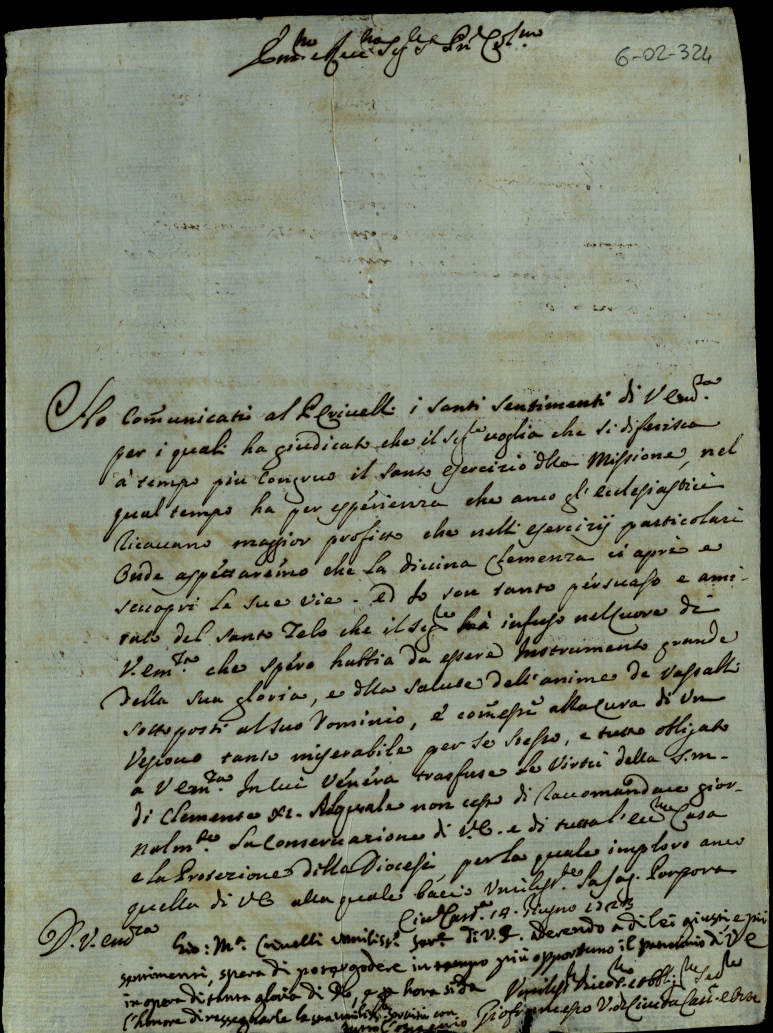 6-02-324
Ho Comunicati al P. Crivelli i santi sentimenti di V Em.za
per i quali ha giudicato che il Sig.re voglia che si differisca
a tempo piu congruo il santo esercizio della Missione, nel
qual tempo ha per esperienza che anco gl'Ecclesiastici
ricavano maggior profitto che nelli esercizij particolari
Onde aspettaremo che la divina Clemenza ci apra e
scuopri le sue vie. Ed Io son tanto persuaso e ami-
del santo Zelo che il Sig.re ha infuso nel Cuore di
V. Em.za che spero habbia da essere Instrumento grande
della sua gloria, e della salute dell'anime de Vassalli
sottoposti al suo Dominio, e comesse alla Cura di Un
Vescovo tanto miserabile per se stesso, e tutto obligato
a V Em.za In lui venera trasfuse le Virtù della S.m.
di Clemente XI. Al quale non cesso di raccomandare gior-
nalm.te la Conservazione di V.E. e di tutta l'Ecc.ma Casa
e la Protezione della Diocesi, per la quale imploro anco
quella di VE alla quale bacio Umiliss.te la Sag. Porpora
D. V. Em.za
Città Cast. 14 Giugno 1723
Gio: M.a Crivelli umiliss.o ser.re di V.E. aderendo a di lei giusti e pii
sentimenti, spera di poter godere in tempo più opportuno il patrocinio di VE
in opera di tanta gloria di Dio, e per hora si da
l'honore di rassegnarle la sua